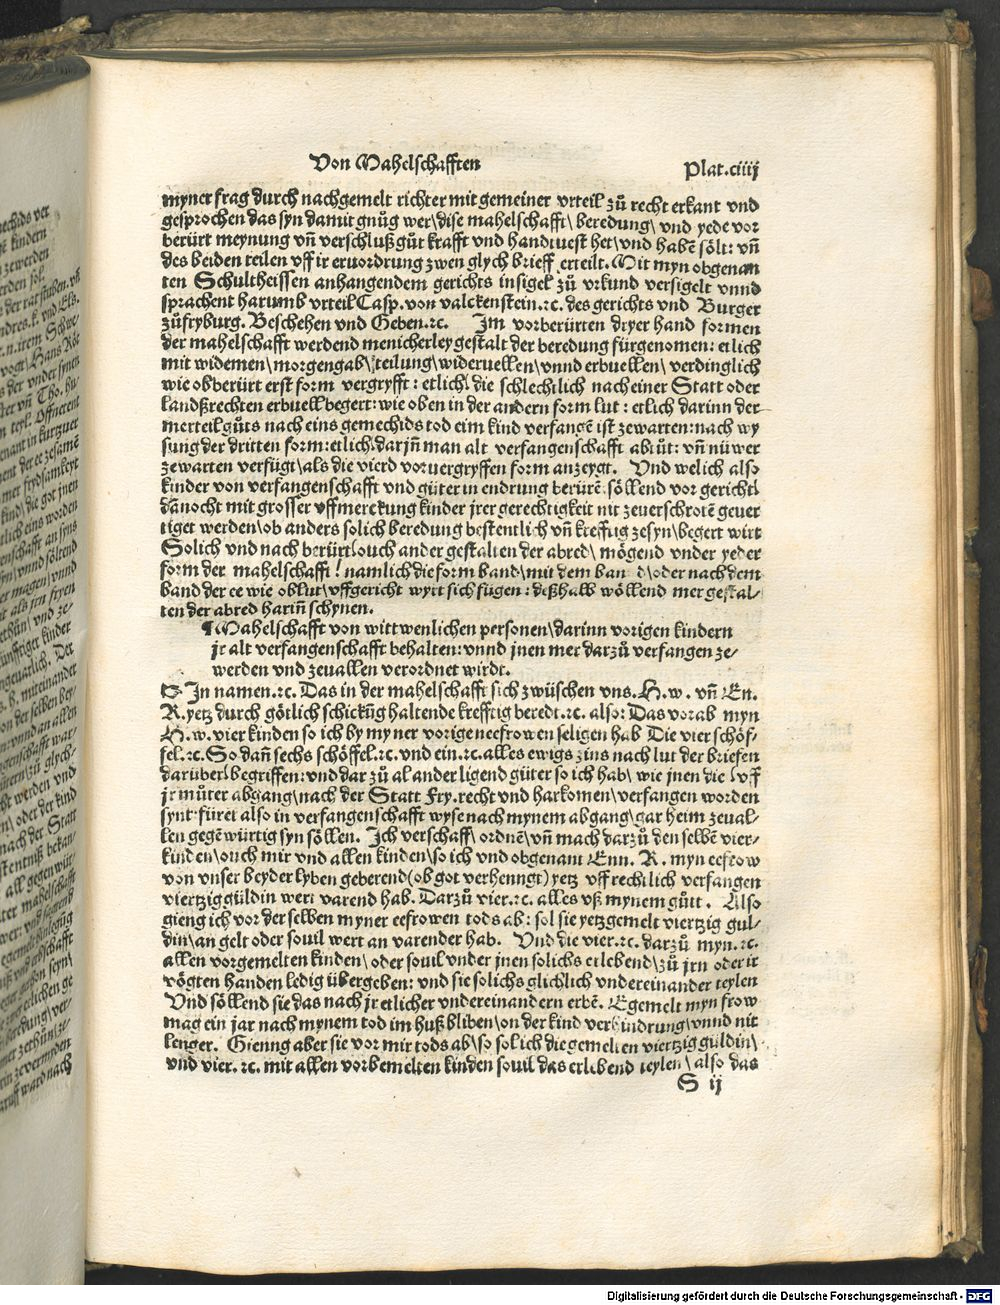 Von Mahelschafften
Plat.ciiij
myner frag durch nachgemelt richter mit gemeiner vrteil zů recht erkant vnd
gesprochen das syn damit gnůg wer\dise mahelschafft\ beredung\ vnd yede vor
berürt meynung vñ verschluß gůt krafft vnd handtuest het\vnd habē sölt: vñ
des beiden teilen vff ir eruordrung zwen glych brieff erteilt. Mit myn obgenan
ten Schultheissen anhangendem gerichts insigel zů vrkund versigelt vnnd
sprachent harumb vrteil Casp. von valckenstein.ꝛc. des gerichts vnd Burger
zůfryburg. Beschehen vnd Geben.ꝛc. Jm vorberürten dryer hand formen
der mahelschafft werdend menicherley gestalt der beredung fürgenomen: etlich
mit widemen\morgengab\teilung\wideruellen\vnnd erbuellen\ verdinglich
wie obberürt erst form vergryfft: etlich\ die schlechtlich nach einer Statt oder
landßrechten erbuell begert: wie oben in der andern form lut: etlich darinn der
merteil gůts nach eins gemechids tod eim kind verfangē ist zewarten: nach wy
sung der dritten form: etlich\darjñ man alt verfangenschafft abtůt: vñ nüwer
zewarten verfügt\als die vierd voruergryffen form anzeygt. Vnd welich also
kinder von verfangenschafft vnd güter in endrung berürē. söllend vor gericht\
dānocht mit grosser vffmerckung kinder jrer gerechtigkeit nit zeuerschrotē geuer
tiget werden\ob anders solich beredung bestentlich vñ krefftig zesyn\begert wirt
Solich vnd nach berürt\ouch ander gestalten der abred\ mögend vnder yeder
form der mahelschafft! namlich die form band\mit dem ban d\oder nach dem
band der ee wie oblut\vffgericht wyrt sich fügen: deßhalb wöllend mer gestal-
ten der abred hariñ schynen.
¶Mahelschafft von wittwenlichen personen\darinn vorigen kindern
jr alt verfangenschafft behalten: vnnd jnen mer darzů verfangen ze-
werden vnd zeuallen verordnet wirdt.
Jn namen.ꝛc. Das in der mahelschafft sich zwüschen vns. H. w. vñ En.
R. yetz durch götlich schickūg haltende krefftig beredt.ꝛc. also: Das vorab myn
H. w. vier kinden so ich by myner vorigen eefrowen seligen hab Die vier schöf-
fel.ꝛc. So dañ sechs schöffel.ꝛc. vnd ein.ꝛc. alles ewigs zins nach lut der briefen
darüber\begriffen: vnd dar zů al ander ligend güter so ich hab\ wie jnen die \vff
jr můter abgang\nach der Statt Fry. recht vnd harkomen\verfangen worden
synt: fürer also in verfangenschafft wyse nach mynem abgang\gar heim zeual-
len gegēwürtig syn söllen. Jch verschaff\ ordnē\vñ mach darzů den selbē vier-
kinden\ouch mir vnd allen kinden\so ich vnd obgenant Enn. R. myn eefrow
von vnser beyder lyben geberend (ob got verhenngt) yetz vff rechtlich verfangen
viertzig güldin wert varend hab. Darzů vier.ꝛc. alles vß mynem gůtt. Also
gieng ich vor der selben myner eefrowen tods ab: sol sie yetzgemelt viertzig gul-
din\an gelt oder souil wert an varender hab. Vnd die vier.ꝛc. darzů myn.ꝛc.
allen vorgemelten kinden\ oder souil vnder jnen solichs erlebend\zů jrn oder ir
vögten handen ledig übergeben: vnd sie solichs glichlich vndereinander teylen
Vnd söllend sie das nach jr etlicher vndereinandern erbē. Egemelt myn frow
mag ein jar nach mynem tod im huß bliben\on der kind verhindrung\vnnd nit
lenger. Gienng aber sie vor mir tods ab\so solich die gemelten viertzig güldin\
vnd vier. ꝛc. mit allen vorbemelten kinden souil das erlebend teylen\ also das
S ij
Digitalisierung gefördert durch die Deutsche Forschungsgemeinschaft - DFG